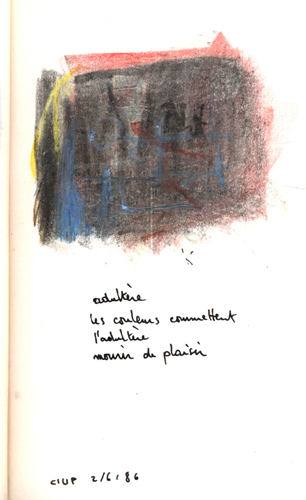 adultère
les couleurs commettent
l'adultère
mourir de plaisir
CIUP 2/6/86